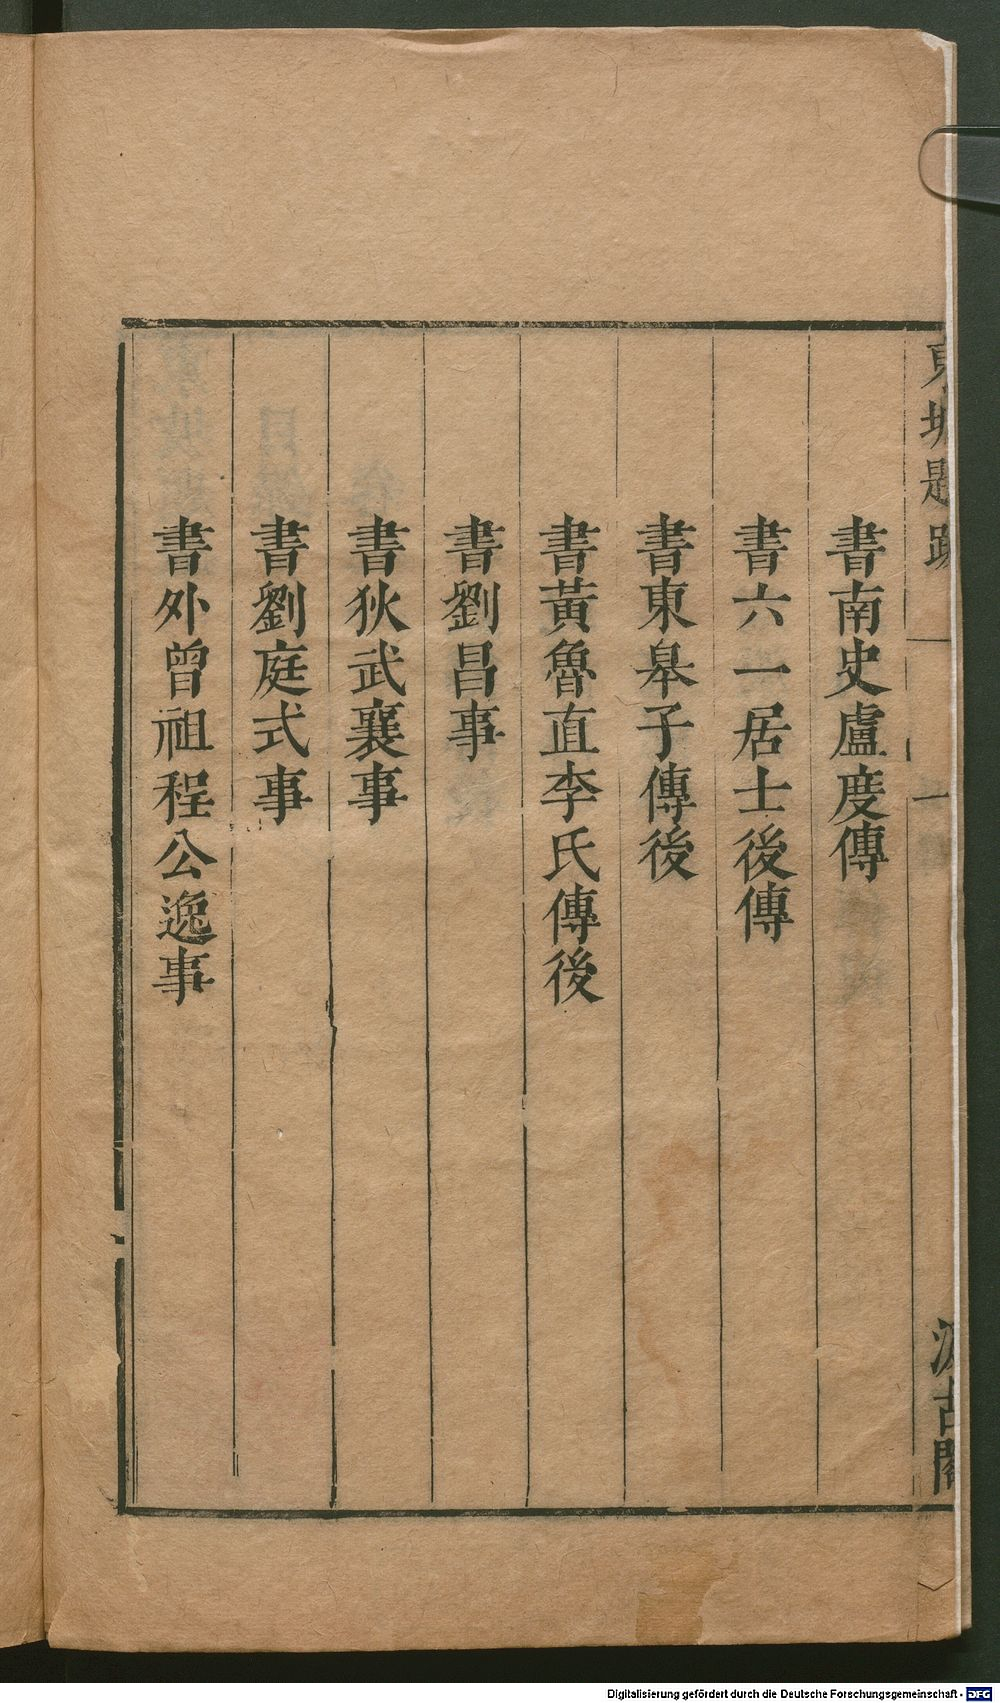 東坡題跋 一 汲古閣
書南史盧度傳
書六一居士後傳
書東皋子傳後
書黃魯直李氏傳後
書劉昌事
書狄武襄事
書劉庭式事
書外曾祖程公逸事
Digitalisierung gefördert durch die Deutsche Forschungsgemeinschaft - DFG